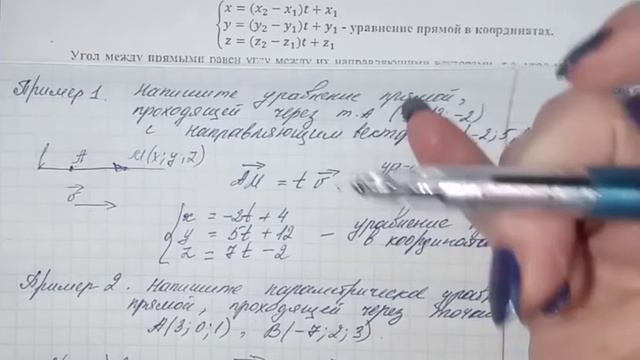 x = (x₂ − x₁)t + x₁
y = (y₂ − y₁)t + y₁ - уравнение прямой в координатах.
z = (z₂ − z₁)t + z₁
Угол между прямыми равен углу между их направляющими
Пример 1. Напишите уравнение прямой,
проходящей через т. A ( -2)
с направляющим (-2; 5,
l A M(x; y; z)
AM = t v
v
x = -2t + 4
y = 5t + 12 – уравнение
z = 7t - 2 в координатах
Пример 2. Напишите параметрическое
прямой, проходящей через
A(3; 0; 1), B(-7; 2; 3).